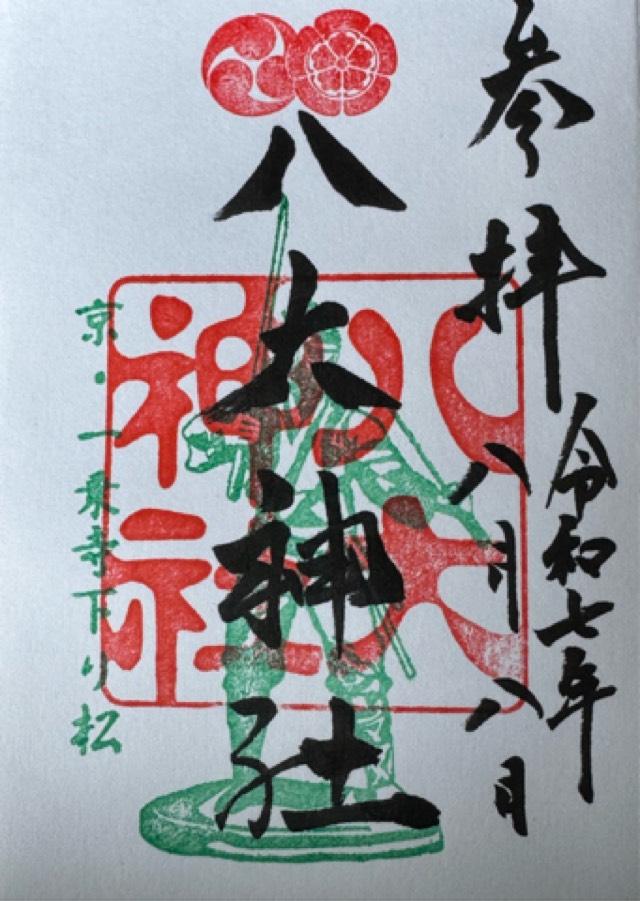 参拝
令和七年
八月八日
八大神社
八大
神社
京・一乗寺下り松